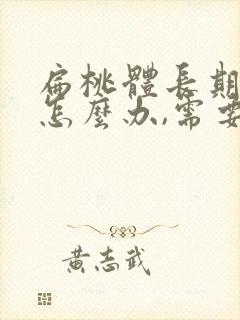 扁桃體長期
怎麼办,需要
黃志武